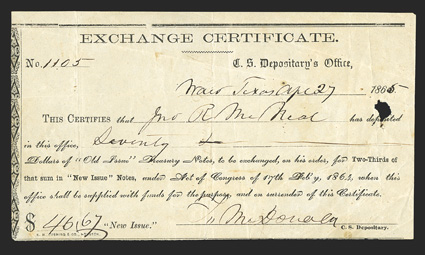 EXCHANGE CERTIFICATE.
No. 1105 C. S. Depositary's Office,
Waco Texas Apl 27 1865
THIS CERTIFIES that Jno R. McNeal has deposited
in this office, Seventy
Dollars of "Old Issue" Treasury Notes, to be exchanged, on his order, for Two-Thirds of
that sum in "New Issue" Notes, under Act of Congress of 17th Feb'y, 1864, when this
office shall be supplied with funds for the purpose, and on surrender of this Certificate.
$ 46,67 "New Issue." McDonald
C. S. Depositary.